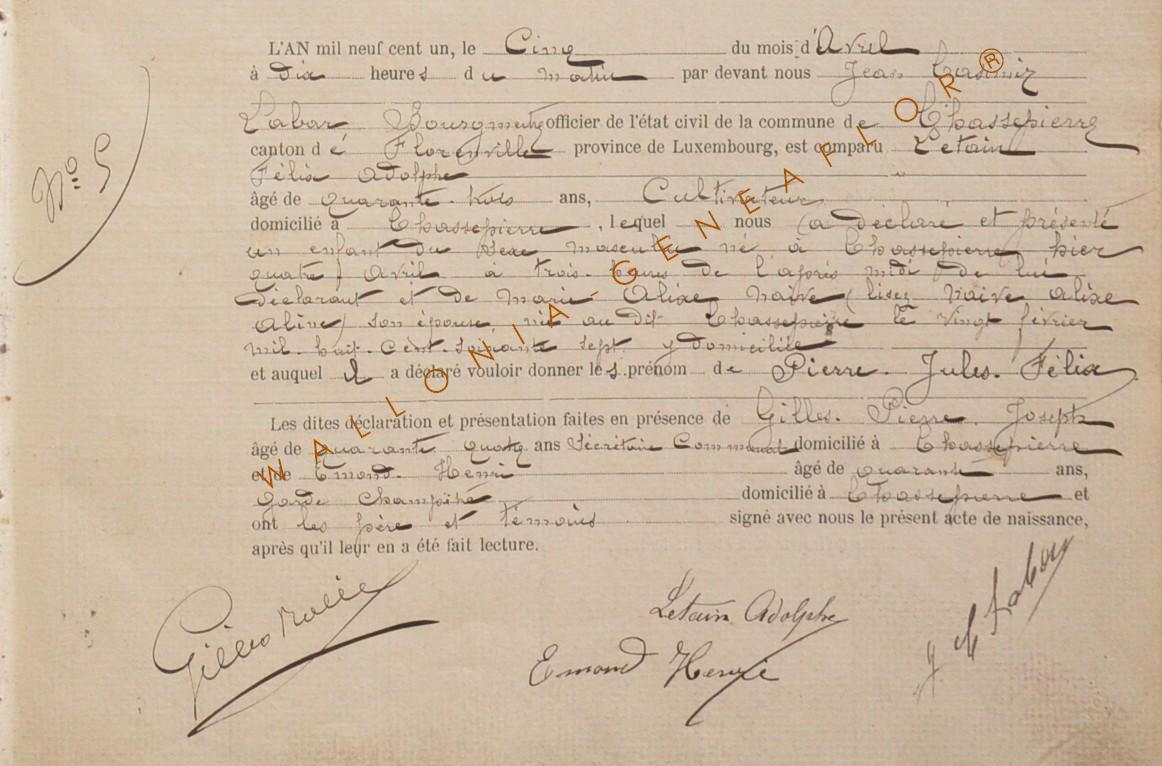 L'AN mil neuf cent un, le Cinq du mois d'Avril
à dix heures du matin par devant nous Jean Casimir
Labar Bourgmestre officier de l'état civil de la commune de Chassepierre
canton de Florenville province de Luxembourg, est comparu Letain
Félix Adolphe
âgé de quarante-trois ans, Cultivateur
domicilié à Chassepierre, lequel nous a déclaré et présenté
un enfant du sexe masculin né à Chassepierre hier
quatre Avril à trois heures de l'après midi de lui
déclarant et de Marie Alixe Naive (lisez Naive Alixe
Aline) son épouse, née au dit Chassepierre le vingt février
mil-huit-cent-soixante sept y domiciliée
et auquel il a déclaré vouloir donner les prénom de Pierre. Jules. Félix
Les dites déclaration et présentation faites en présence de Gilles. Pierre Joseph
âgé de quarante quatre ans Secrétaire Communal domicilié à Chassepierre
et de Emond. Henri âgé de quarante ans,
Garde Champêtre domicilié à Chassepierre et
ont les père et témoins signé avec nous le présent acte de naissance,
après qu'il leur en a été fait lecture.
N° 5
Gilles
Letain Adolphe
Emond Henri
J C Labar
WALLONIA-GENEAFLOR®